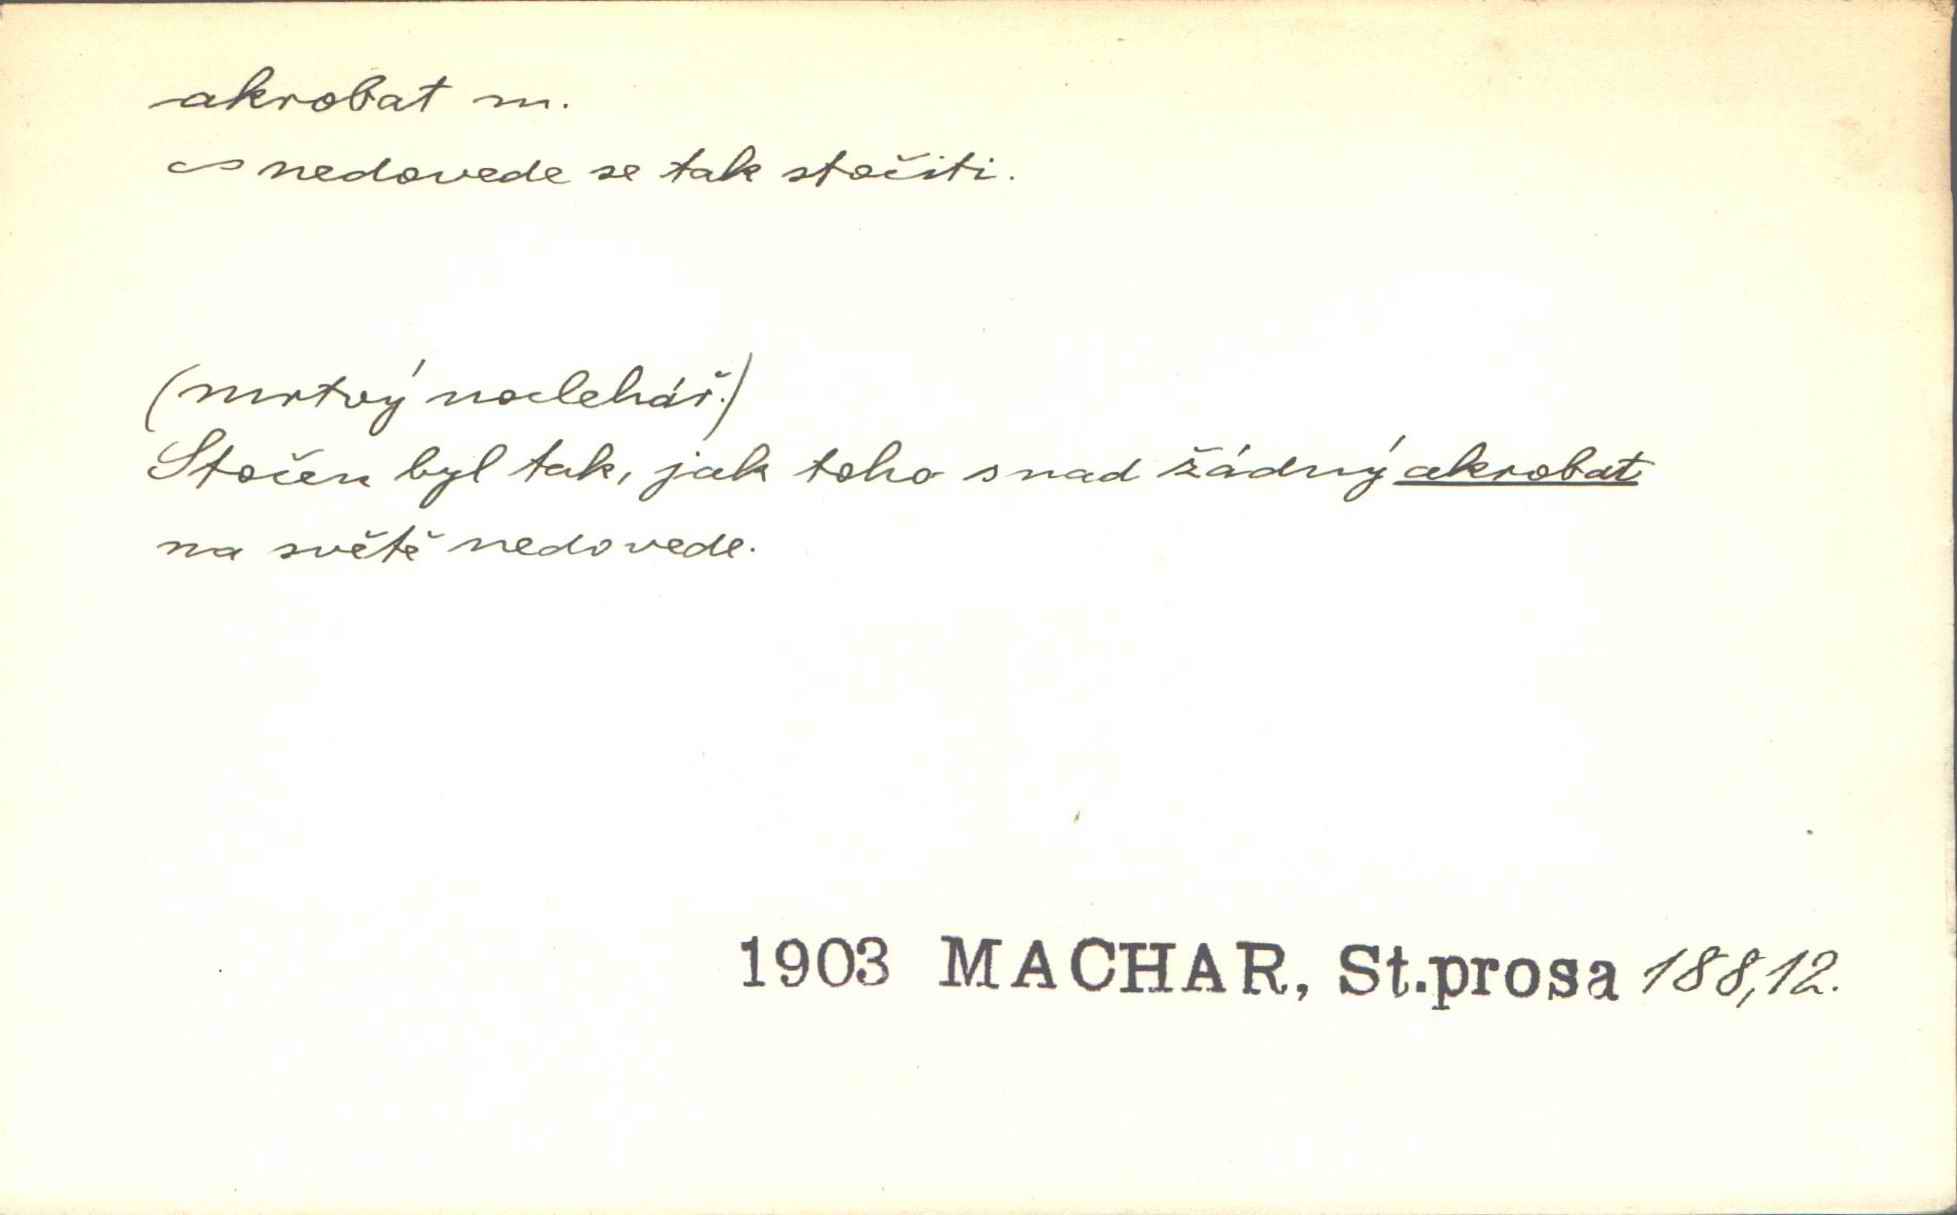 akrobat m.
∽ nedovede se tak stočiti.
(mrtvý noclehář.)
Stočen byl tak, jak toho snad žádný akrobat
na světě nedovede.
1903 MACHAR, St.prosa 188,12.